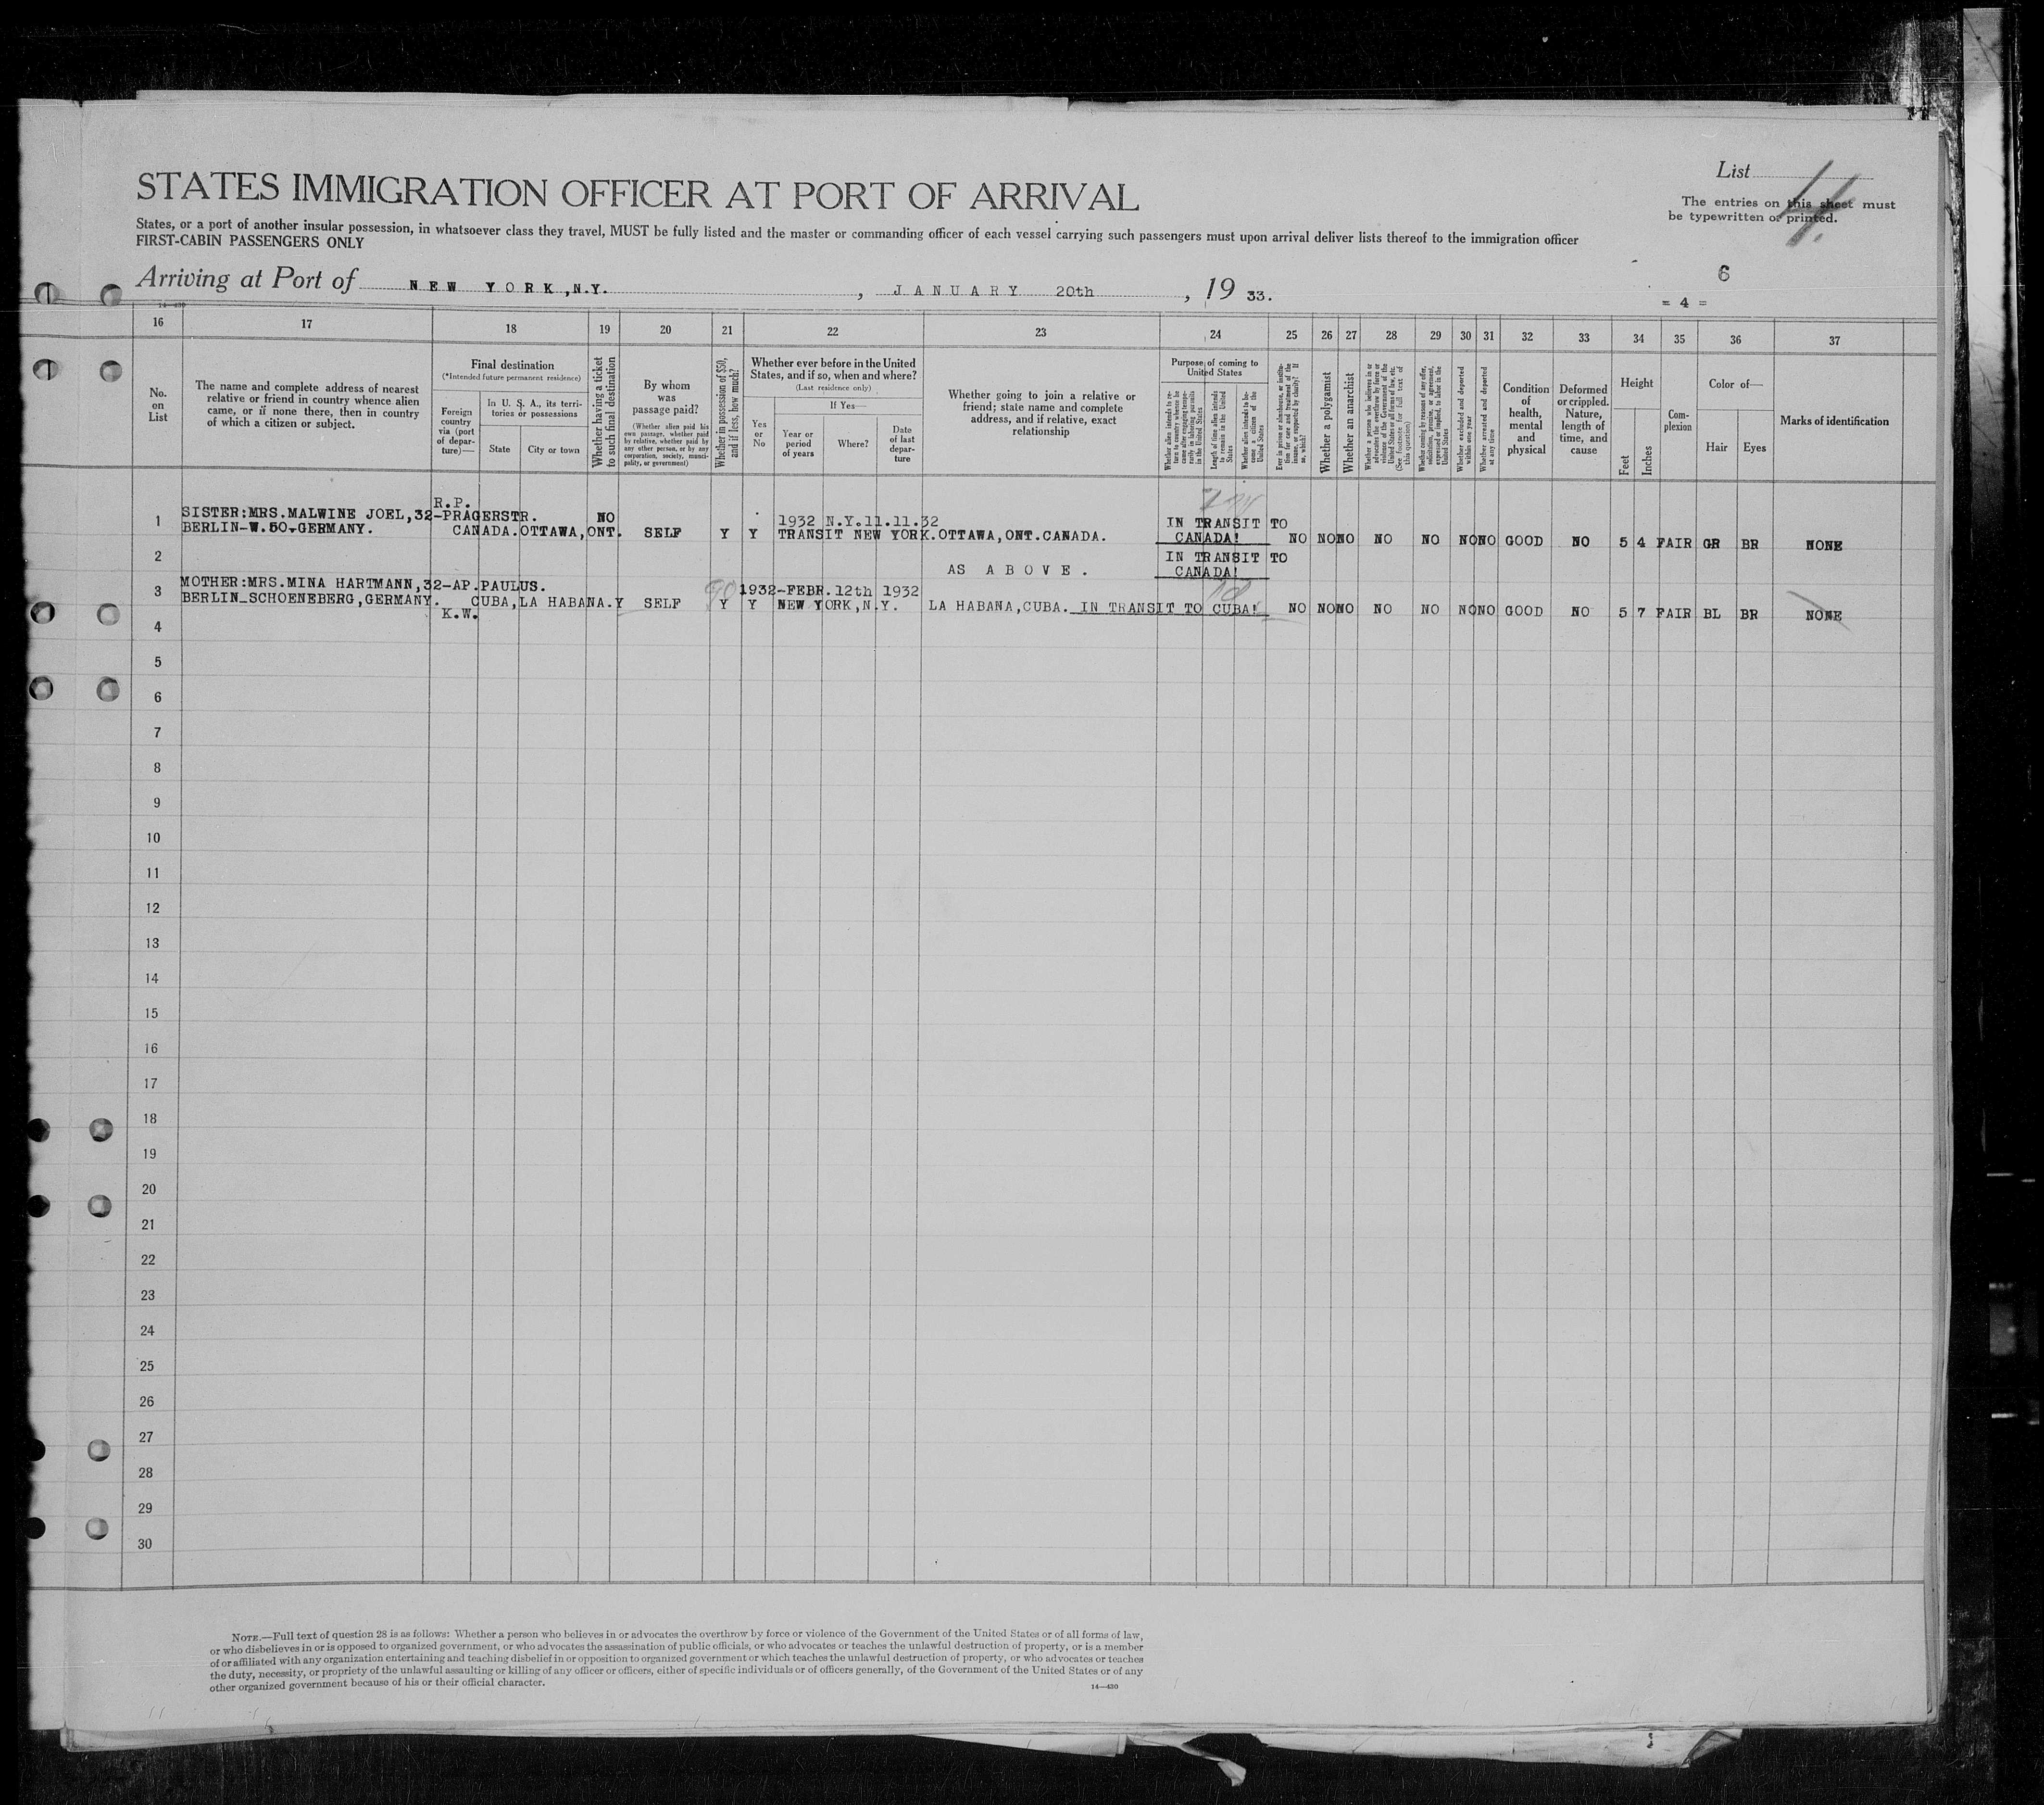 List
STATES IMMIGRATION OFFICER AT PORT OF ARRIVAL
The entries on this sheet must
be typewritten or printed.
States, or a port of another insular possession, in whatsoever class they travel, MUST be fully listed and the master or commanding officer of each vessel carrying such passengers must upon arrival deliver lists thereof to the immigration officer
FIRST-CABIN PASSENGERS ONLY
Arriving at Port of NEW YORK, N.Y. , JANUARY 20th , 19 33.
6
= 4 =
14—430
16 17 18 19 20 21 22 23 24 25 26 27 28 29 30 31 32 33 34 35 36 37
No. on List
The name and complete address of nearest relative or friend in country whence alien came, or if none there, then in country of which a citizen or subject.
Final destination
(*Intended future permanent residence)
Foreign country via (port of departure)—
In U. S. A., its territories or possessions
State
City or town
Whether having a ticket to such final destination
By whom was passage paid?
(Whether alien paid his own passage, whether paid by relative, whether paid by any other person, or by any corporation, society, municipality, or government)
Whether in possession of $50, and if less, how much?
Whether ever before in the United States, and if so, when and where?
(Last residence only)
Yes or No
If Yes—
Year or period of years
Where?
Date of last departure
Whether going to join a relative or friend; state name and complete address, and if relative, exact relationship
Purpose of coming to United States
Whether alien intends to return to country whence he came after engaging temporarily in laboring pursuits in the United States
Length of time alien intends to remain in the United States
Whether alien intends to become a citizen of the United States
Ever in prison or almshouse, or institution for care and treatment of the insane, or supported by charity? If so, which?
Whether a polygamist
Whether an anarchist
Whether a person who believes in or advocates the overthrow by force or violence of the Government of the United States or all forms of law, etc. (See footnote for full text of this question)
Whether coming by reasons of any offer, solicitation, promise, or agreement, expressed or implied, to labor in the United States
Whether excluded and deported within one year
Whether arrested and deported at any time
Condition of health, mental and physical
Deformed or crippled. Nature, length of time, and cause
Height
Feet
Inches
Complexion
Color of—
Hair
Eyes
Marks of identification
R.P.
1 SISTER:MRS.MALWINE JOEL,32-PRAGERSTR. NO 1932 N.Y.11.11.32 IN TRANSIT TO
BERLIN-W.50-GERMANY. CANADA.OTTAWA,ONT. SELF Y Y TRANSIT NEW YORK.OTTAWA,ONT.CANADA. CANADA! NO NO NO NO NO NO NO GOOD NO 5 4 FAIR GR BR NONE
2 IN TRANSIT TO
AS ABOVE. CANADA!
3 MOTHER:MRS.MINA HARTMANN,32-AP.PAULUS. 1932-FEBR.12th 1932
BERLIN-SCHOENEBERG,GERMANY. CUBA,LA HABANA.Y SELF Y Y NEW YORK,N.Y. LA HABANA,CUBA. IN TRANSIT TO CUBA! NO NO NO NO NO NO NO GOOD NO 5 7 FAIR BL BR NONE
K.W.
4
5
6
7
8
9
10
11
12
13
14
15
16
17
18
19
20
21
22
23
24
25
26
27
28
29
30
NOTE.—Full text of question 28 is as follows: Whether a person who believes in or advocates the overthrow by force or violence of the Government of the United States or of all forms of law,
or who disbelieves in or is opposed to organized government, or who advocates the assassination of public officials, or who advocates or teaches the unlawful destruction of property, or is a member
of or affiliated with any organization entertaining and teaching disbelief in or opposition to organized government or which teaches the unlawful destruction of property, or who advocates or teaches
the duty, necessity, or propriety of the unlawful assaulting or killing of any officer or officers, either of specific individuals or of officers generally, of the Government of the United States or of any
other organized government because of his or their official character.
14—430